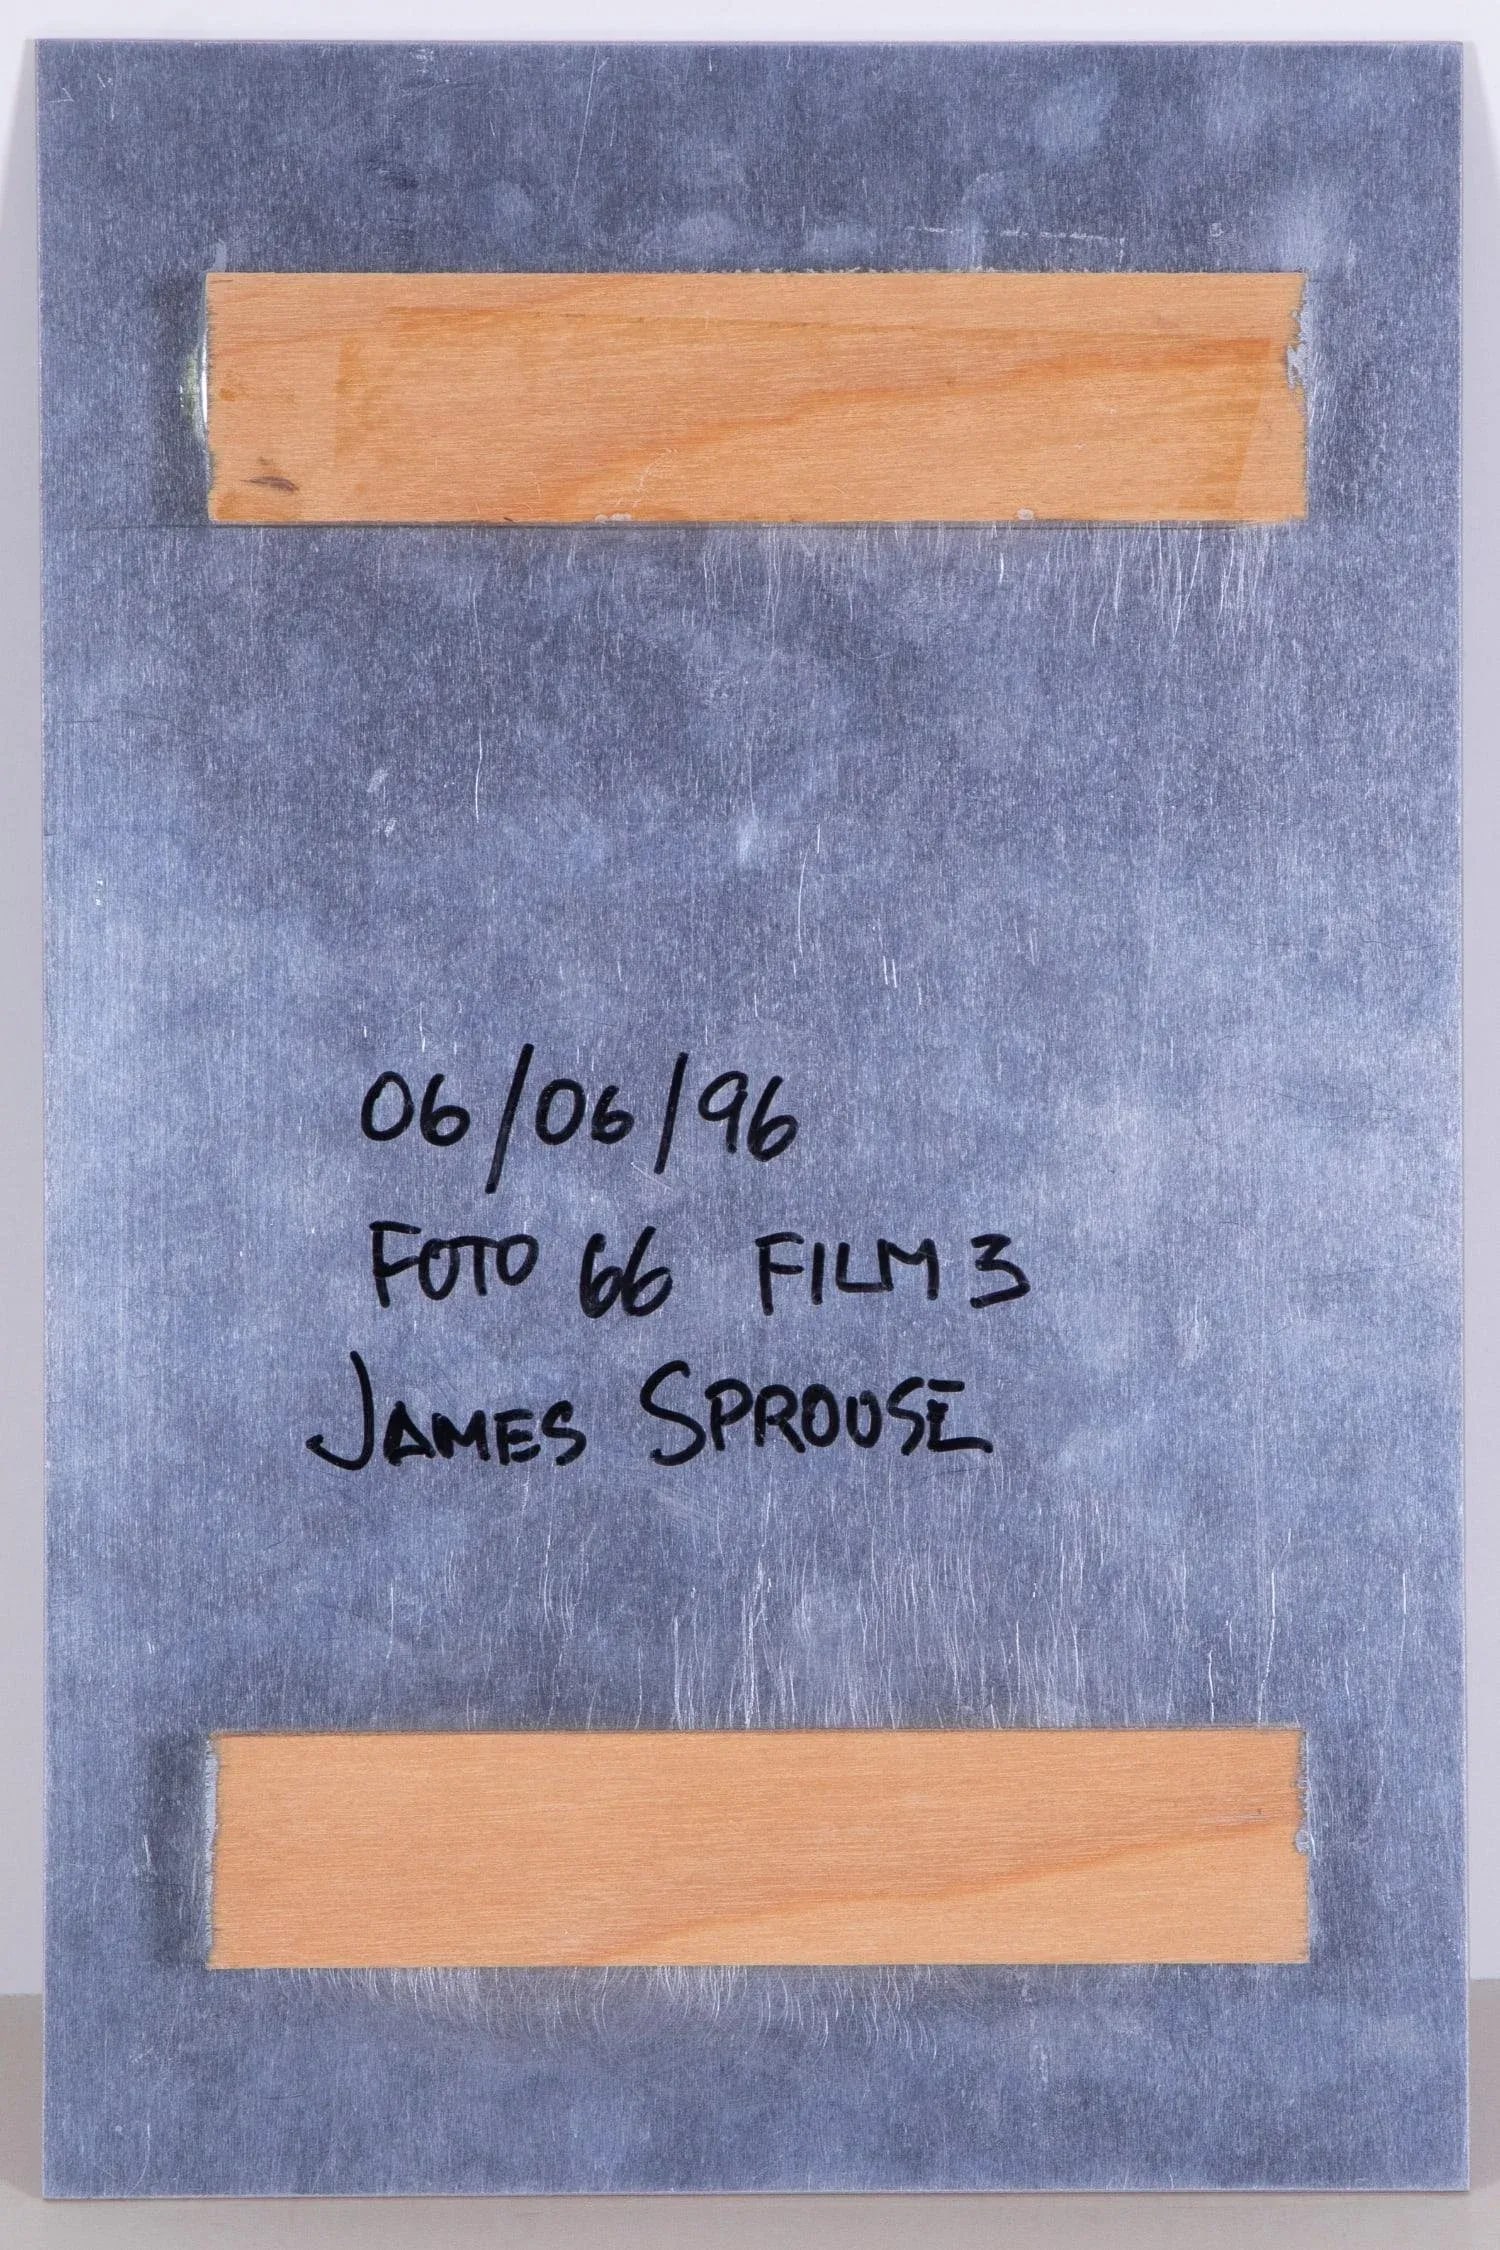 06/06/96
FOTO 66 FILM 3
JAMES SPROUSE